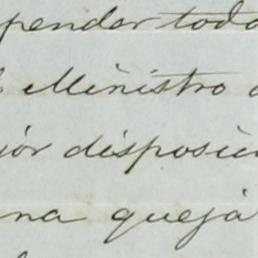 pender toda
Ministro
jór disposici
na quejá